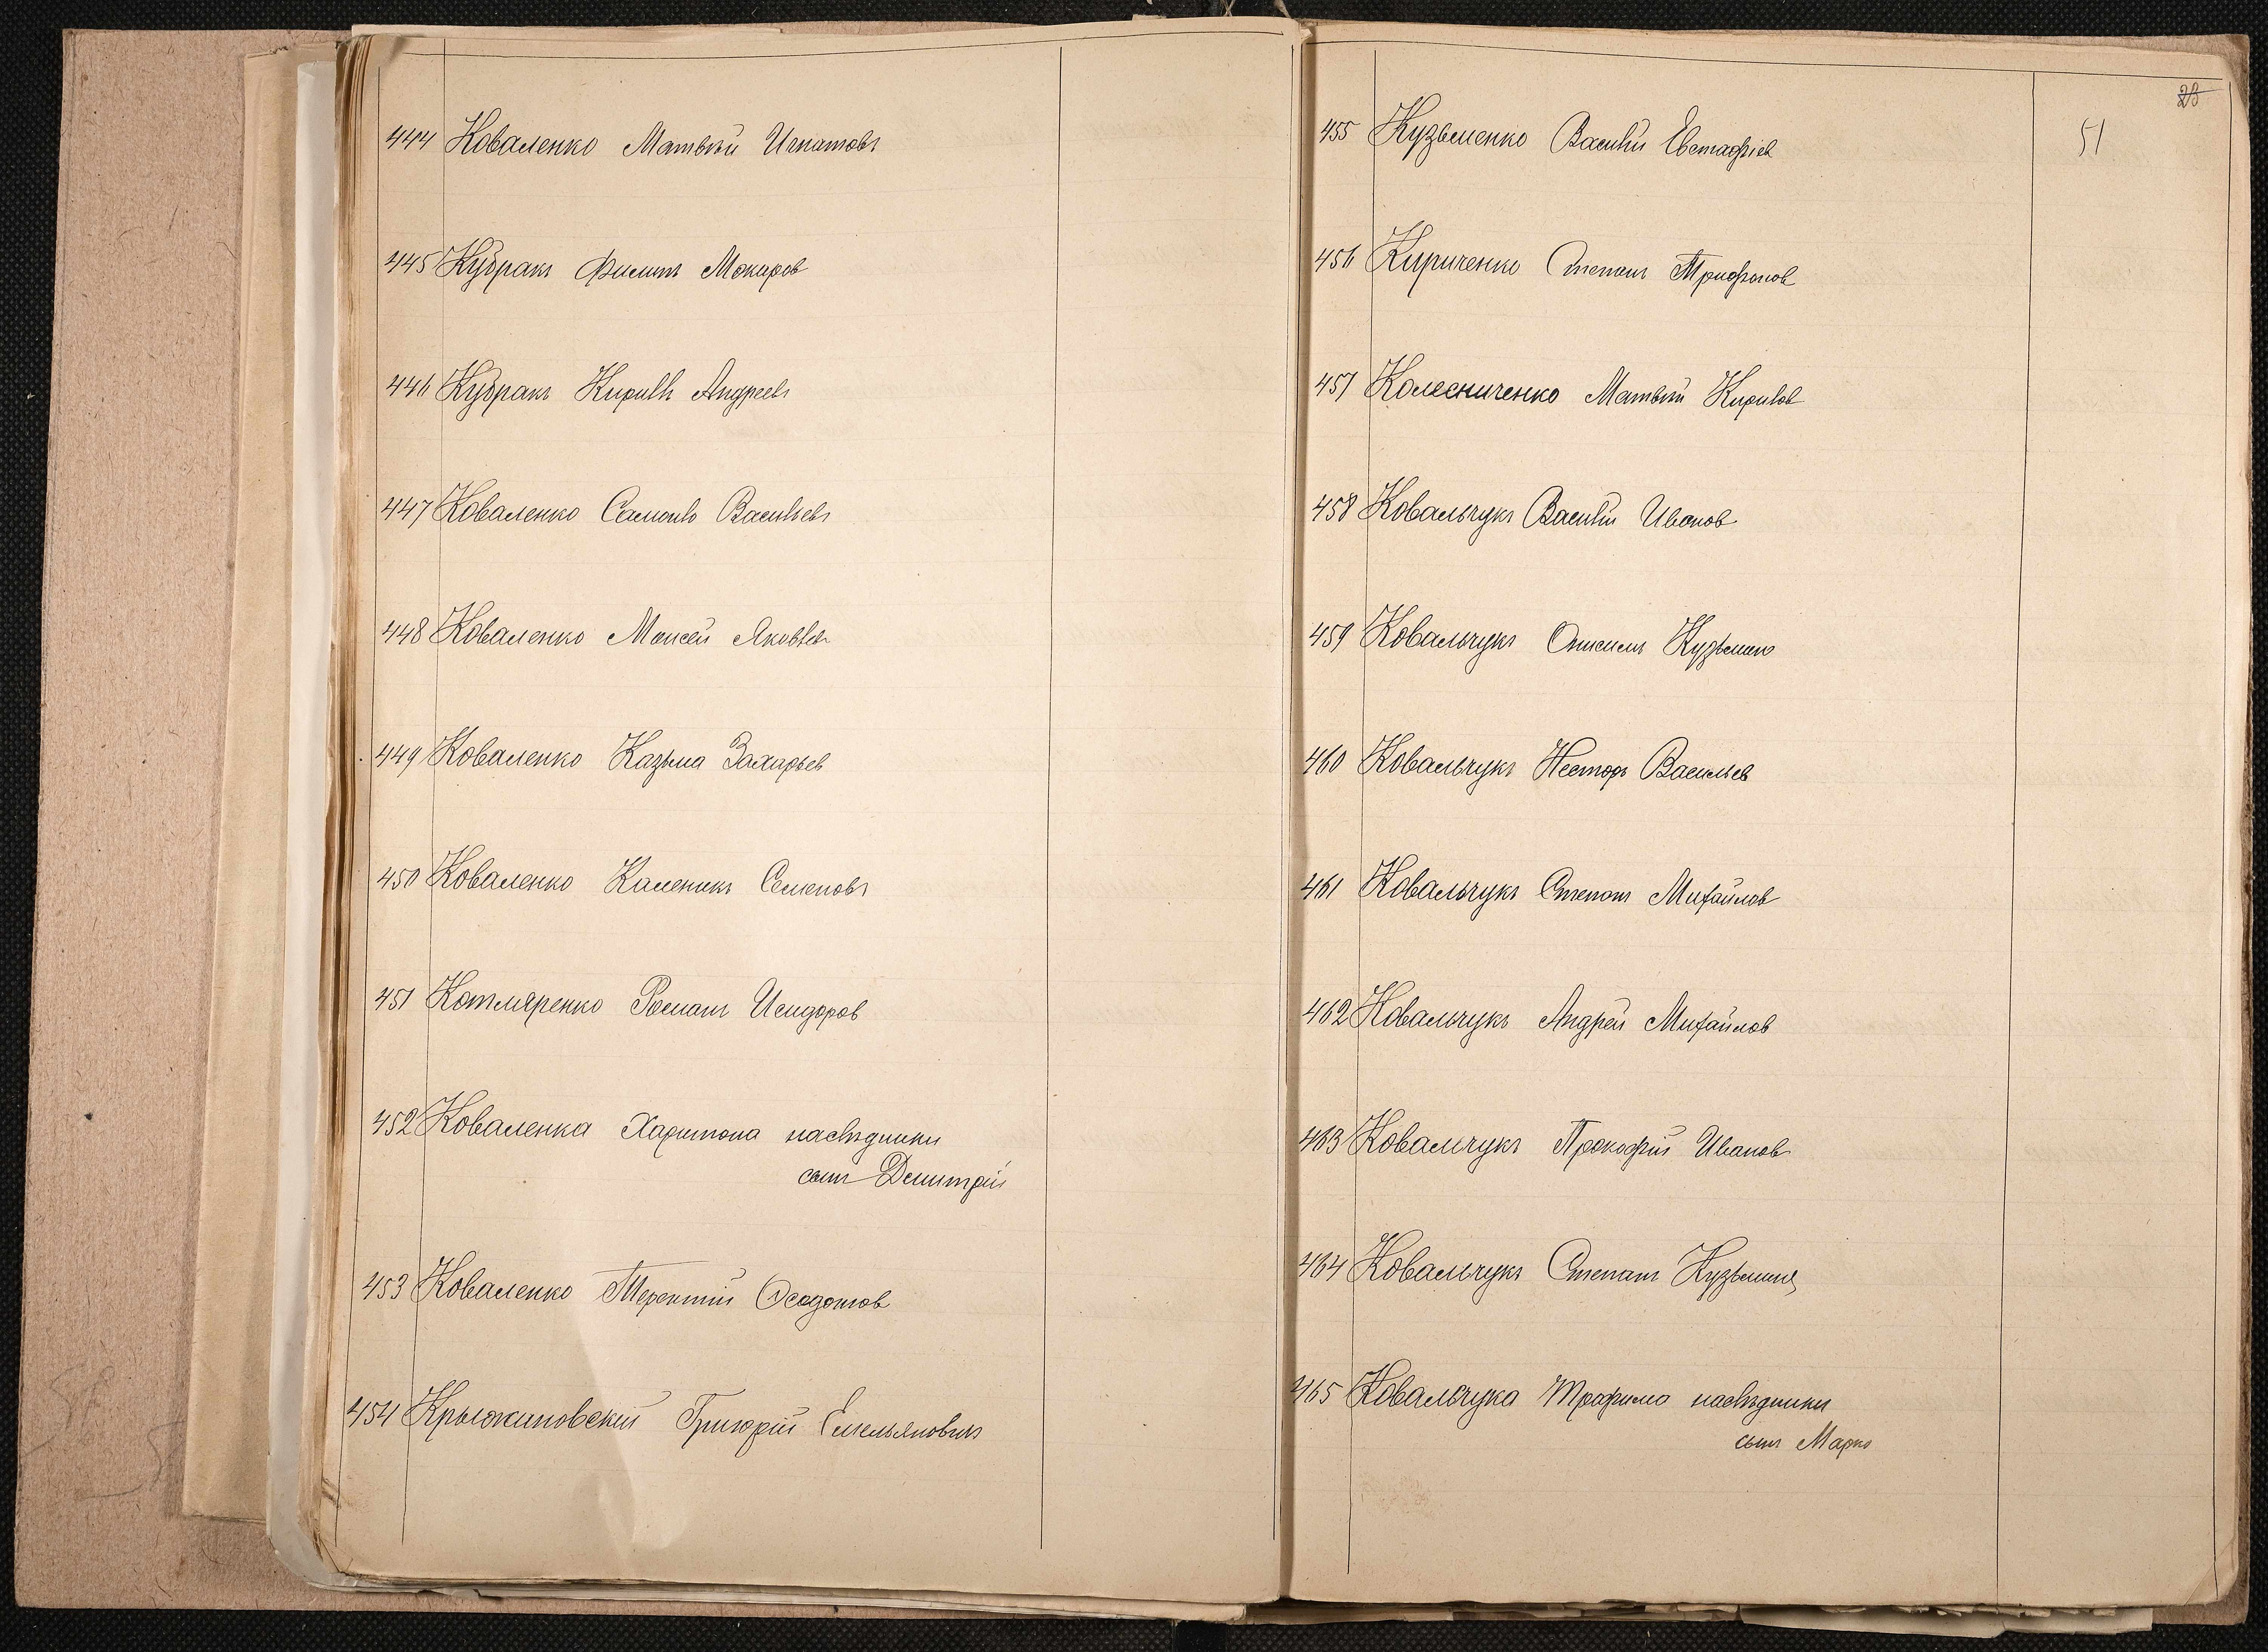 444 Коваленко Матвѣй Игнатовъ
445 Кубракъ Филипъ Макаров
446 Кубракъ Кирилъ Андреевъ
447 Коваленко Самоилъ Васильевъ
448 Коваленко Моисей Яковлев
449 Коваленко Казьма Захарьев
450 Коваленко Каленикъ Семеновъ
451 Котляренко Романъ Исидоров
452 Коваленка Харитона наслѣдники
сынъ Дмитрій
453 Коваленко Терентій Осодотов
454 Крыжановскій Григорій Емельяновичъ
23
51
455 Кузьменко Василій Евстафіев
456 Кириченко Степанъ Трифонов
457 Колесниченко Матвѣй Кирилов
458 Ковальчукъ Василій Иванов
459 Ковальчукъ Онисимъ Кузьмин
460 Ковальчукъ Несторъ Васильев
461 Ковальчукъ Степанъ Михайлов
462 Ковальчукъ Андрей Михайлов
463 Ковальчукъ Прокофій Иванов
464 Ковальчукъ Степанъ Кузьминъ
465 Ковальчука Трофима наслѣдники
сынъ Марко